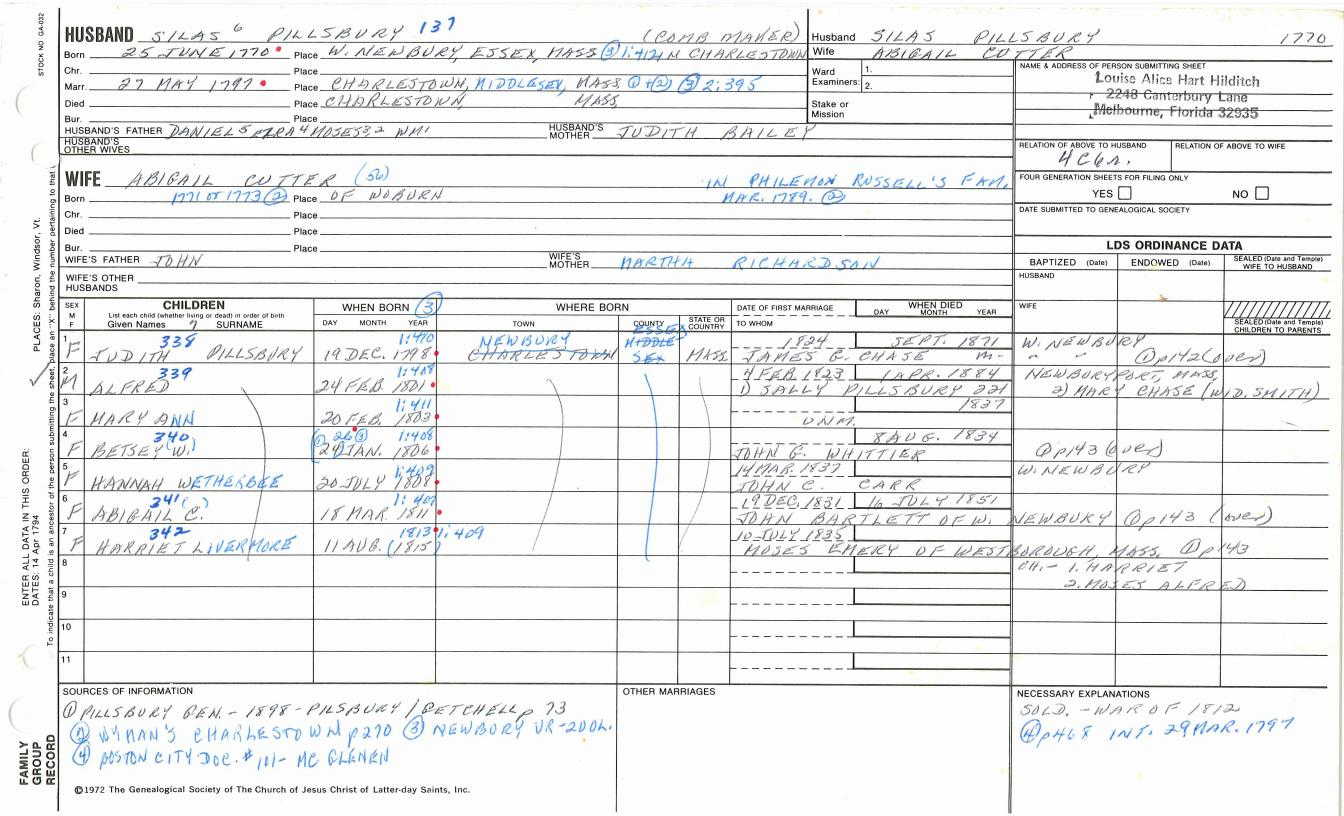 STOCK NO. GA-032
PLACES: Sharon, Windsor, Vt.
ENTER ALL DATA IN THIS ORDER:
DATES: 14 Apr 1794
To indicate that a child is an ancestor of the person submitting the sheet, place an "X" behind the number pertaining to that
FAMILY GROUP RECORD
HUSBAND SILAS 6 PILLSBURY 137 (COMB MAKER)
Born 25 JUNE 1770 Place W. NEWBURY, ESSEX, MASS ③ 1:412 M CHARLESTOWN
Chr. Place
Marr. 27 MAY 1797 Place CHARLESTOWN, MIDDLESEX, MASS ①+② ③ 2:395
Died Place CHARLESTOWN, MASS
Bur. Place
HUSBAND'S FATHER DANIEL 5 EZRA 4 MOSES 3,2 WM 1 HUSBAND'S MOTHER JUDITH BAILEY
HUSBAND'S OTHER WIVES
Husband SILAS PILLSBURY 1770
Wife ABIGAIL CUTTER
Ward Examiners: 1.
2.
Stake or Mission
NAME & ADDRESS OF PERSON SUBMITTING SHEET
Louise Alice Hart Hilditch
2248 Canterbury Lane
Melbourne, Florida 32935
RELATION OF ABOVE TO HUSBAND RELATION OF ABOVE TO WIFE
FOUR GENERATION SHEETS FOR FILING ONLY
YES NO
DATE SUBMITTED TO GENEALOGICAL SOCIETY
WIFE ABIGAIL CUTTER IN PHILEMON RUSSELL'S FAM.
Born 1771 OR 1773 ② Place OF WOBURN MAR. 1789. ②
Chr. Place
Died Place
Bur. Place
WIFE'S FATHER JOHN WIFE'S MOTHER MARTHA RICHARDSON
WIFE'S OTHER HUSBANDS
LDS ORDINANCE DATA
BAPTIZED (Date) ENDOWED (Date) SEALED (Date and Temple) WIFE TO HUSBAND
HUSBAND
WIFE
SEALED (Date and Temple) CHILDREN TO PARENTS
SEX M F CHILDREN List each child (whether living or dead) in order of birth Given Names 7 SURNAME
WHEN BORN ③ DAY MONTH YEAR
WHERE BORN TOWN COUNTY STATE OR COUNTRY
DATE OF FIRST MARRIAGE TO WHOM
WHEN DIED DAY MONTH YEAR
1 338 1:410 NEWBURY ESSEX 1824 SEPT. 1871 W. NEWBURY
F JUDITH PILLSBURY 19 DEC. 1798 CHARLESTOWN MIDDLESEX MASS. JAMES G. CHASE M- " " ① p142 (over)
2 339 1:408 4 FEB 1823 1 APR. 1884 NEWBURYPORT, MASS
M ALFRED 24 FEB 1801 1) SALLY PILLSBURY 221 2) MARY CHASE (WID. SMITH)
3 1:411 1837
F MARY ANN 20 FEB. 1803 UNM.
4 340 26 ③ 1:408 8 AUG. 1834
F BETSEY W. 24 JAN. 1806 JOHN G. WHITTIER ① p143 (over)
5 1:409 14 MAR. 1837 W. NEWBURY
F HANNAH WETHERBEE 20 JULY 1808 JOHN C. CARR
6 341 ( ) 1:407 19 DEC. 1831 16 JULY 1851
F ABIGAIL C. 18 MAR 1811 JOHN BARTLETT OF W. NEWBURY ① p143 (over)
7 342 1813 1:409 10 JULY 1835
F HARRIET LIVERMORE 11 AUG. (1815) MOSES EMERY OF WESTBOROUGH, MASS. ① p143
8 CH.- 1. HARRIET
2. MOSES ALFRED
9
10
11
SOURCES OF INFORMATION
① PILLSBURY GEN. - 1898 - PILSBURY / GETCHELL p 73
② WYMAN'S CHARLESTOWN p270 ③ NEWBURY VR - 2 VOL.
④ BOSTON CITY DOC. #101 - MC GLENEN
OTHER MARRIAGES
NECESSARY EXPLANATIONS
SOLD. - WAR OF 1812
④ p468 INT. 29 MAR. 1797
©1972 The Genealogical Society of The Church of Jesus Christ of Latter-day Saints, Inc.